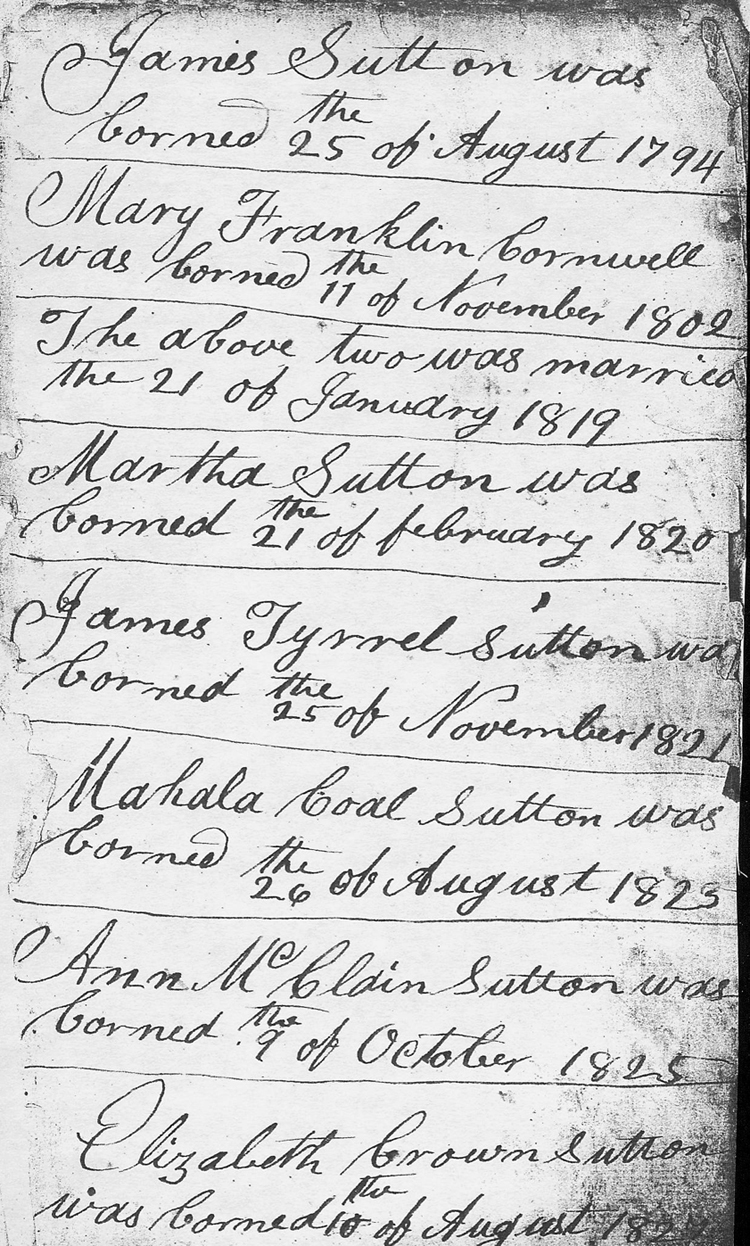 James Sutton was
borned the 25 of August 1794
Mary Franklin Cornwell
was borned the 11 of November 1802
The above two was married
the 21 of January 1819
Martha Sutton was
borned the 21 of february 1820
James Tyrrel Sutton was
borned the 25 of November 1821
Mahala Coal Sutton was
borned the 26 of August 1823
Ann McClain Sutton was
borned the 9 of October 1825
Elizabeth Brown Sutton
was borned the 10 of August